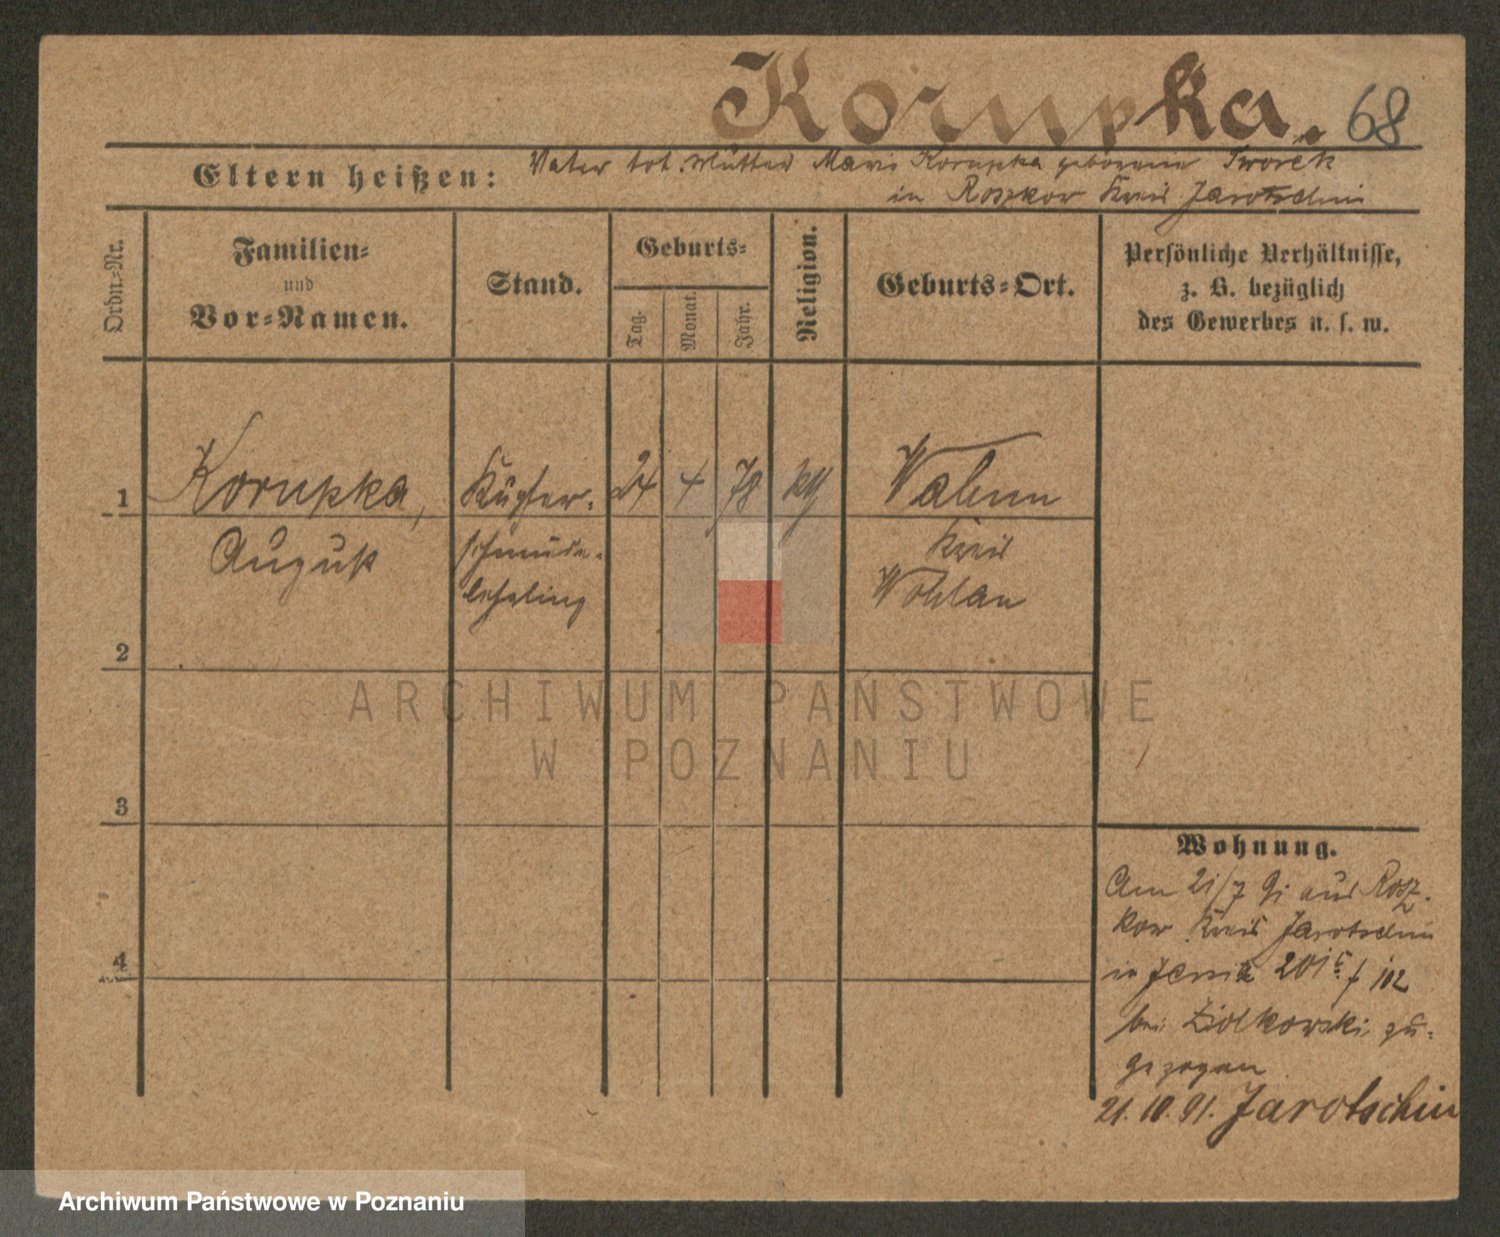 Korupka. 68
Eltern heißen: Vater tot. Mutter Marie Korupka geborene Tworek
in Roszkow Kreis Jarotschin
Ordn.-Nr.
Familien-
und
Vor-Namen.
Stand.
Geburts-
Tag.
Monat.
Jahr.
Religion.
Geburts-Ort.
Persönliche Verhältnisse,
z. B. bezüglich
des Gewerbes u. s. w.
1 Korupka, Kupfer- 24 4 78 kath
August schmiede- Kreis
lehrling Wohlau
2
3
4
Wohnung.
Am 21/7 91 aus Rosz-
kow Kreis Jarotschin
in Jersitz 201 102
bei Ziolkowski zu-
gezogen
21.10.91. Jarotschin
ARCHIWUM PAŃSTWOWE
W POZNANIU
Archiwum Państwowe w Poznaniu